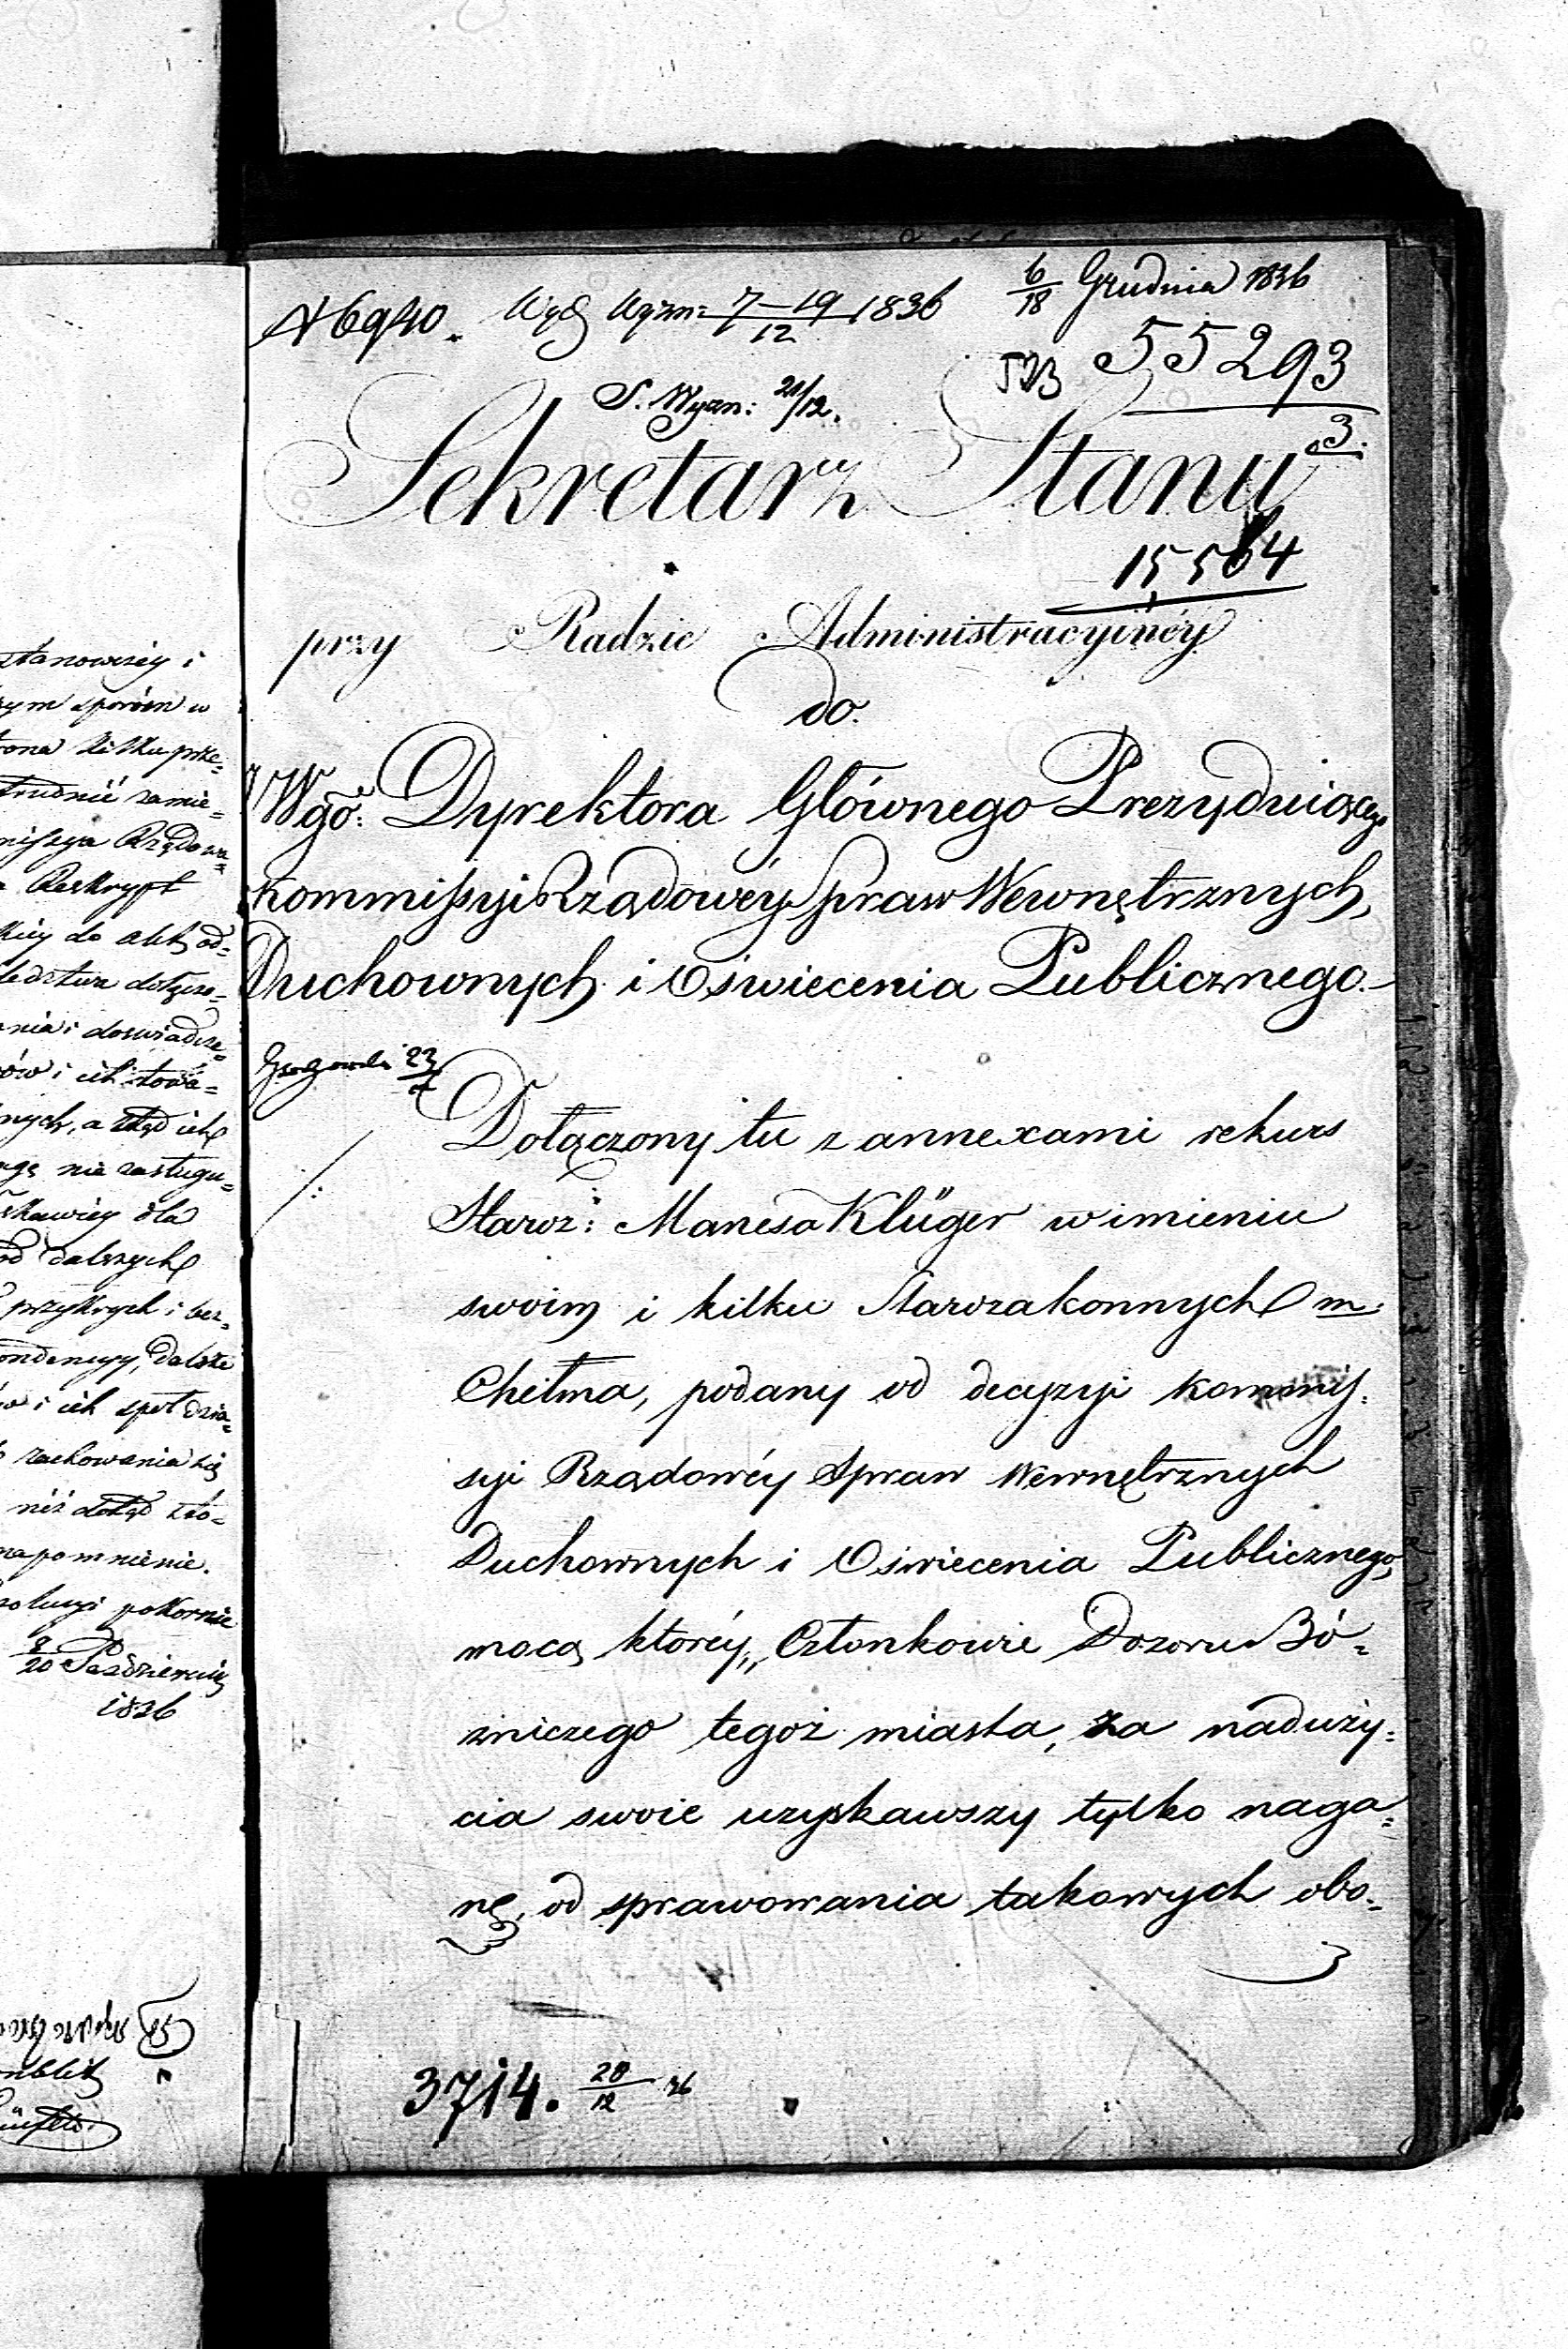 stanowczey i
szym sporom w
trona kilku prze=
trudnić zamie=
missya Rządowa
Reskrypt
kiey do akt od=
ledztwa dotycz=
nia i doswiadcze=
ów i ich towa=
nych, a ztąd ich
agę nie zasługu=
skawiey dla
od dalszych
przykrych i bez=
ondencyy, dalsze
ów i ich spół dzia=
zachowania się
niż dotąd
napomnienie.
zolucyi pokornie
8/20 Październik
1836
N 6940. Wyz Wyzn: 7–19/12 1836
6/18 Grudnia 1836
55293
3.
S. Wyzn: 21/12.
Sekretarz Stanu
15564
przy Radzie Administracyinéy
do.
JWgo. Dyrektora Głównego Prezyduiącego
Kommissyi Rządowéy Spraw Wewnętrznych,
Duchownych i Oświecenia Publicznego.—
23
Dołączony tu z annexami rekurs
Staroz: Manesa Klüger w imieniu
swoim i kilku Starozakonnych m.
Chełma, podany od decyzyi Kommis=
syi Rządowéy Spraw Wewnętrznych
Duchownych i Oświecenia Publicznego,
mocą któréy „Członkowie Dozoru Bó=
zniczego tegoż miasta, za naduży=
cia swoie uzyskawszy tylko naga=
nę, od sprawowania takowych obo=
3714. 28/12 36